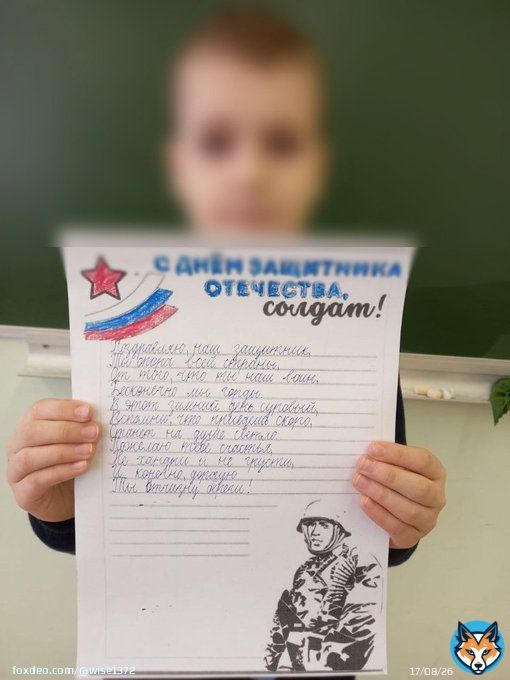 С ДНЁМ ЗАЩИТНИКА
ОТЕЧЕСТВА,
солдат!
Поздравляю, наш защитник,
Ты опора всей страны,
От того, что ты наш воин,
Бесконечно мы горды.
В этот зимний день суровый,
Вспомни, что придёшь скоро,
Станет на душе светло.
Пожелаю тебе счастья,
Не хандри и не грусти,
И, конечно, дорогую
Ты Отчизну береги!
foxdeo.com/@wise1372
17/08/26